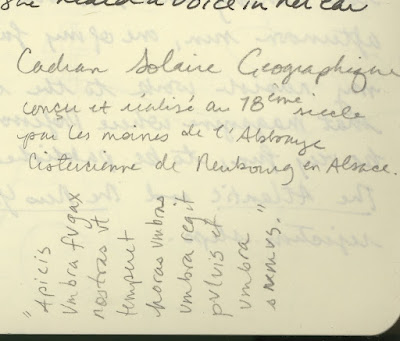 she heard a voice in her ear
Cadran Solaire Geographique
conçu et réalisé au 18ème siecle
par les moines de l'Abbaye
Cistercienne de Neubourg en Alsace.
"Apicis
vmbra fvgax
nostras vt
temperet
horas vmbras
vmbra regit
pvlvis et
vmbra
svmvs."